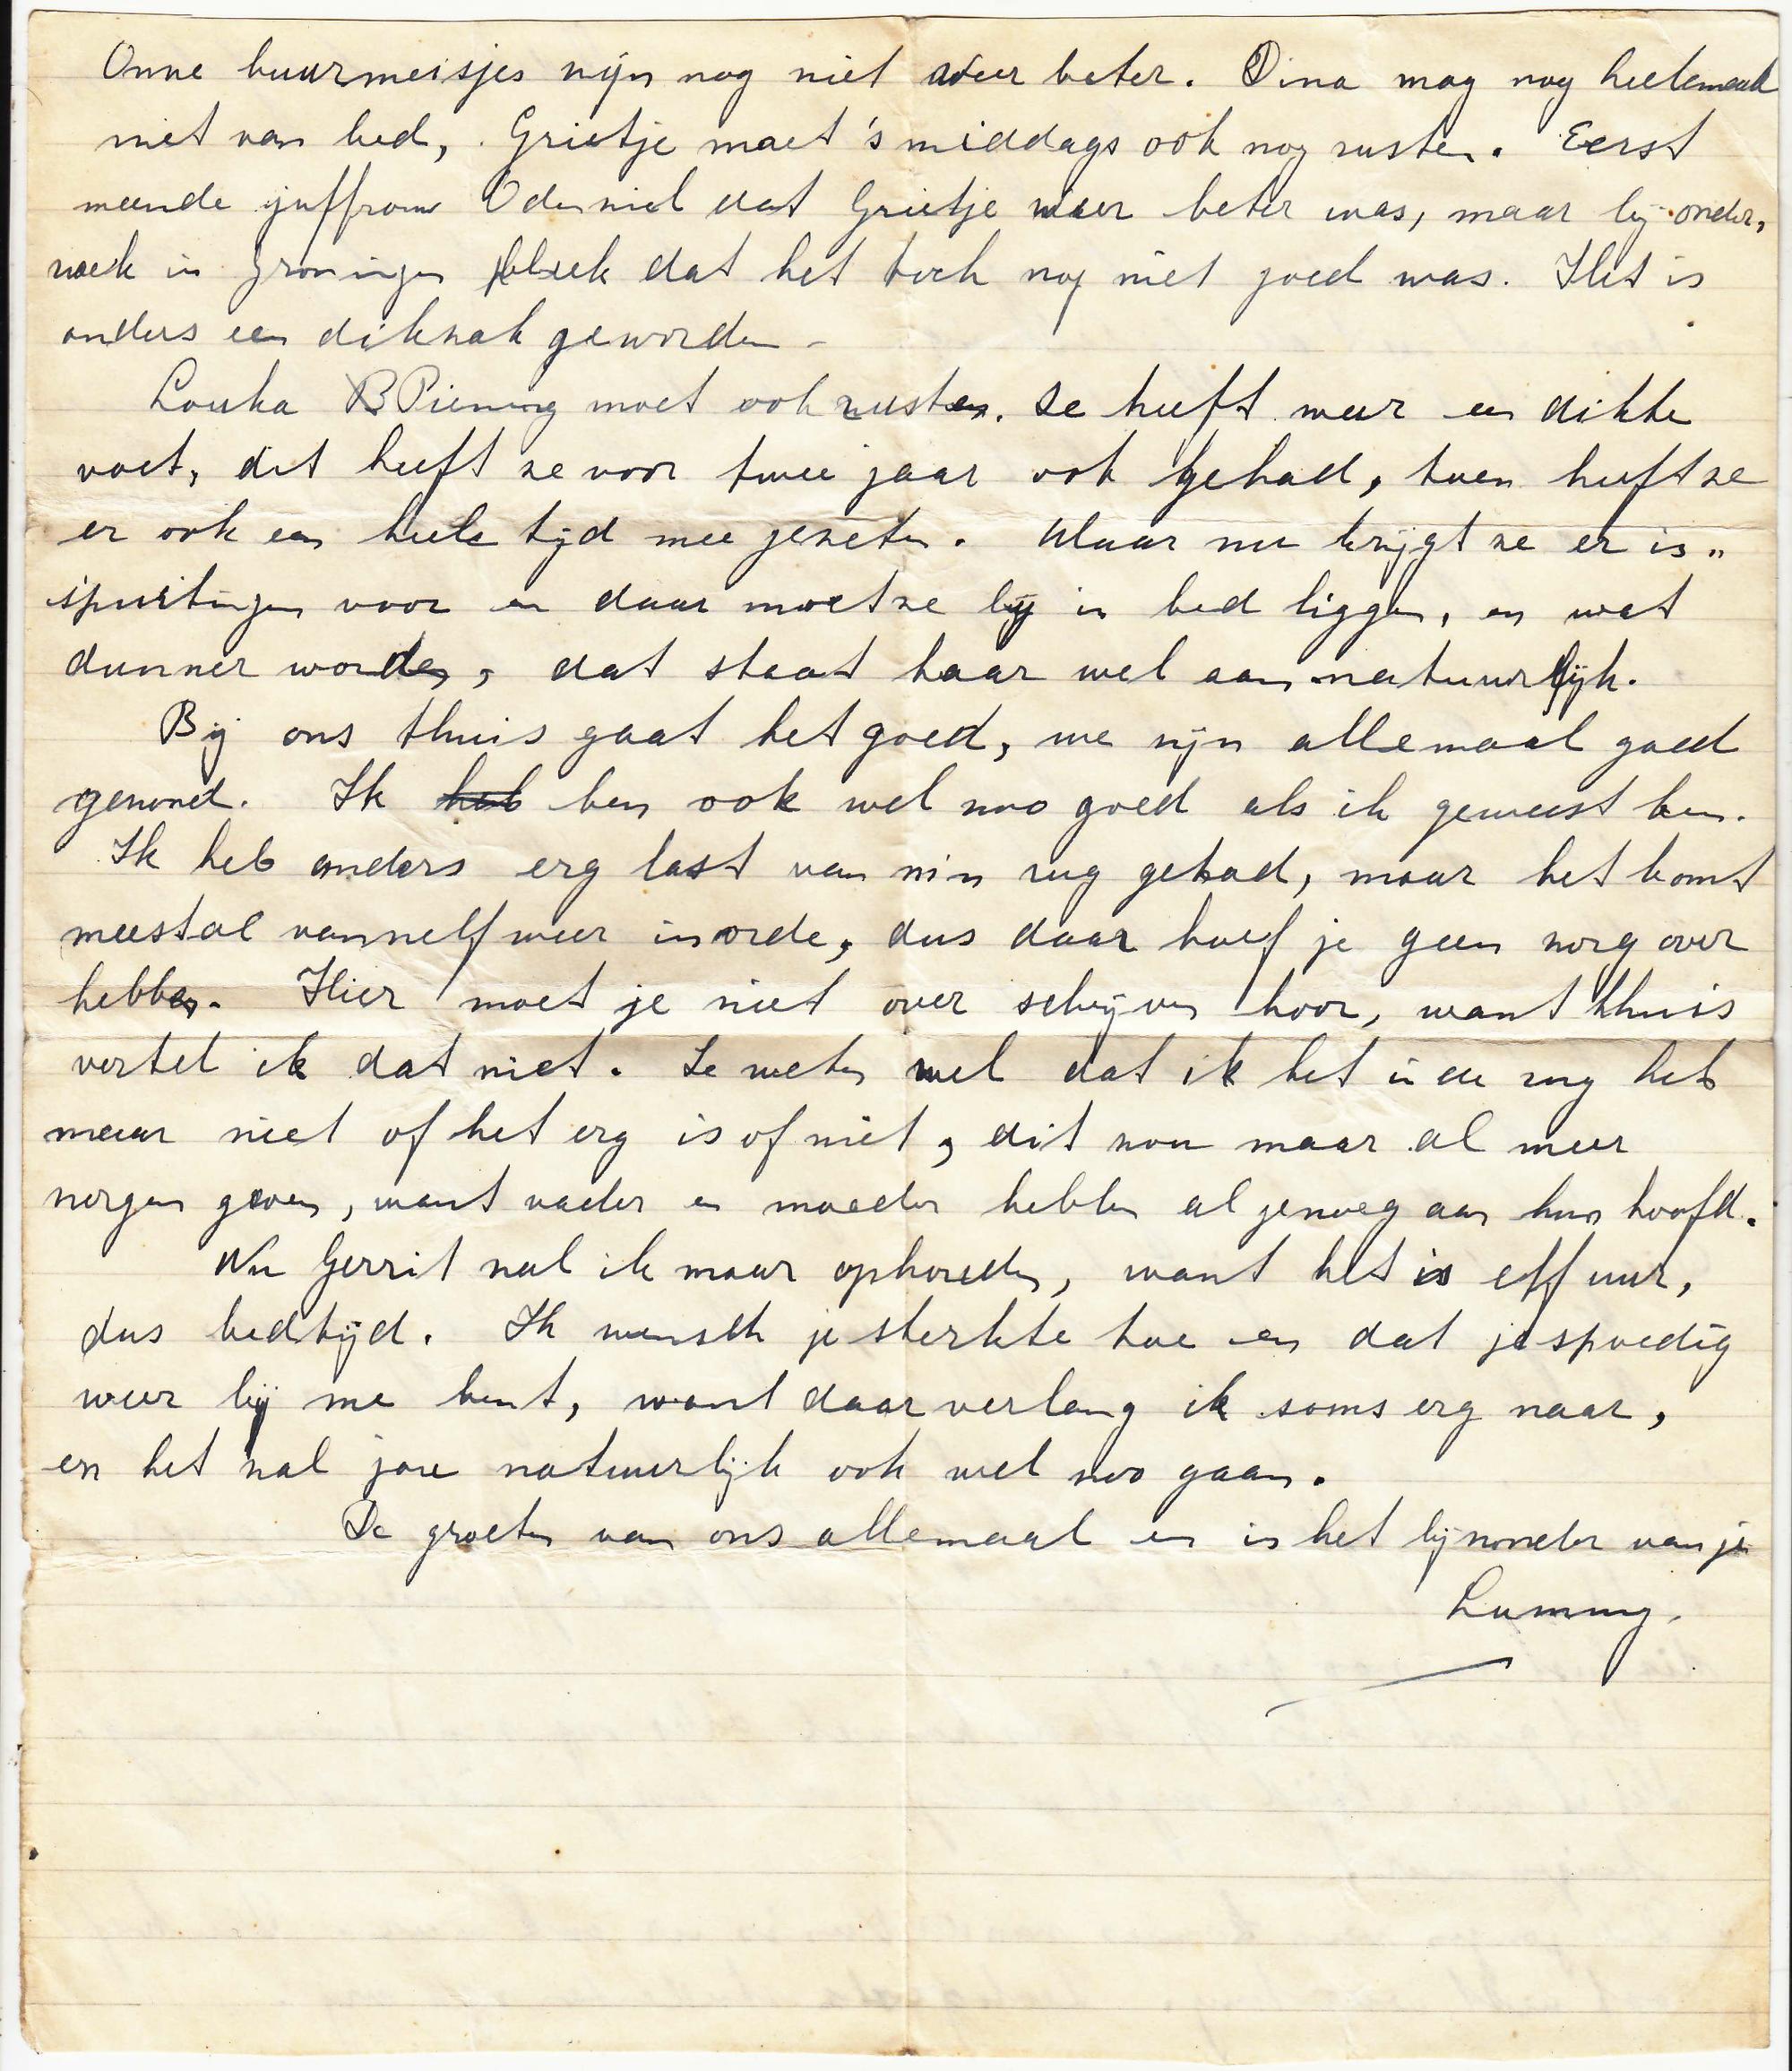 Onze buurmeisjes zijn nog niet weer beter. Dina mag nog heelemaal
niet van bed, Grietje moet 's middags ook nog rusten. Eerst
meende juffrouw dat Grietje weer beter was, maar bij onder„
zoek in Groningen bleek dat het toch nog niet goed was. Het is
anders een dikzak geworden.
Louka Piening moet ook rusten. Ze heeft weer een dikke
voet, dit heeft ze voor twee jaar ook gehad, toen heeft ze
er ook een heele tijd mee gezeten. Maar nu krijgt ze er in„
spuitingen voor en daar moet ze bij in bed liggen, en wat
dunner worden, dat staat haar wel aan natuurlijk.
Bij ons thuis gaat het goed, we zijn allemaal goed
gezond. Ik heb ben ook wel zoo goed als ik geweest ben.
Ik heb anders erg last van m'n rug gehad, maar het komt
meestal vanzelf weer in orde, dus daar hoef je geen zorg over
hebben. Hier moet je niet over schrijven hoor, want thuis
vertel ik dat niet. Ze weten wel dat ik het in de rug heb
maar niet of het erg is of niet, dit zou maar al meer
zorgen geven, want vader en moeder hebben al genoeg aan hun hoofd.
Nu Gerrit zal ik maar ophouden, want het is elf uur,
dus bedtijd. Ik wensch je sterkte toe en dat je spoedig
weer bij me bent, want daar verlang ik soms erg naar,
en het zal jou natuurlijk ook wel zoo gaan.
De groeten van ons allemaal en in het bijzonder van je